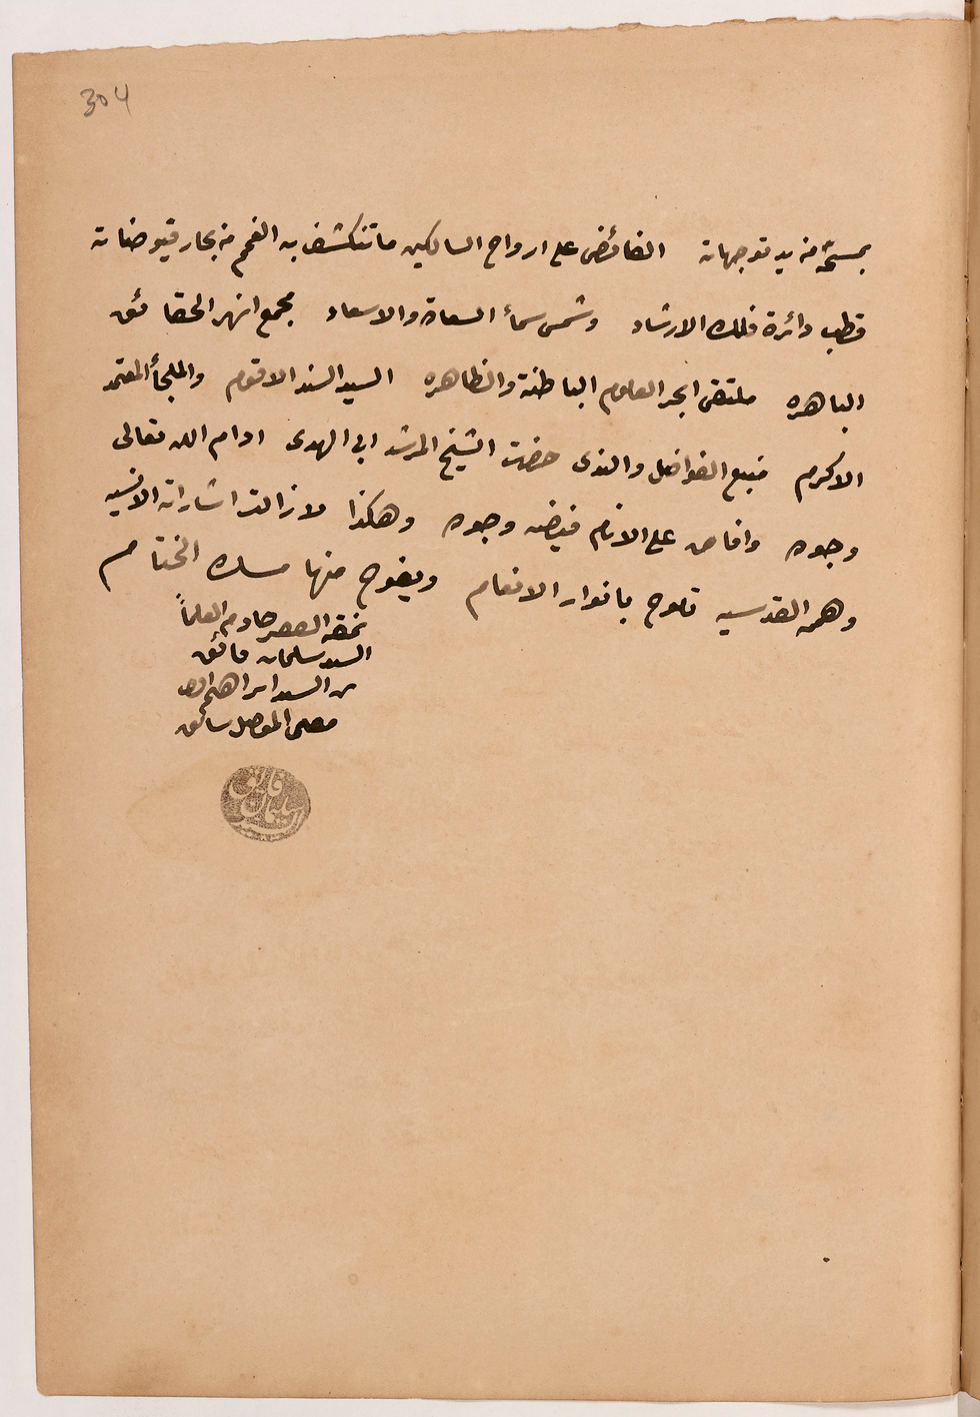 304
بمستمحة من يد توجهاته الفائض على ارواح السالكين ما تنكشف به الغمم من بحار فيوضاته
قطب دائرة فلك الارشاد وشمس سماء السعادة والاسعاد مجمع انهر الحقائق
الباهره ملتقى ابحر العلوم الباطنة والظاهره السيد السند الاقوم والملجأ المعتمد
الاكرم منبع الفواضل والندى حضرت الشيخ المرشد ابي الهدى ادام الله تعالى
وجوده وافاض على الانام فيضه وجوده وهكذا لا زالت اشاراته الانسيه
وهممه القدسيه تلوح بانوار الانعام ويفوح منها مسك الختام
نمقه الفقير خادم العلماء
السيد سليمان فائق
بن السيد ابراهيم
الموصلي
السيد سليمان فايق